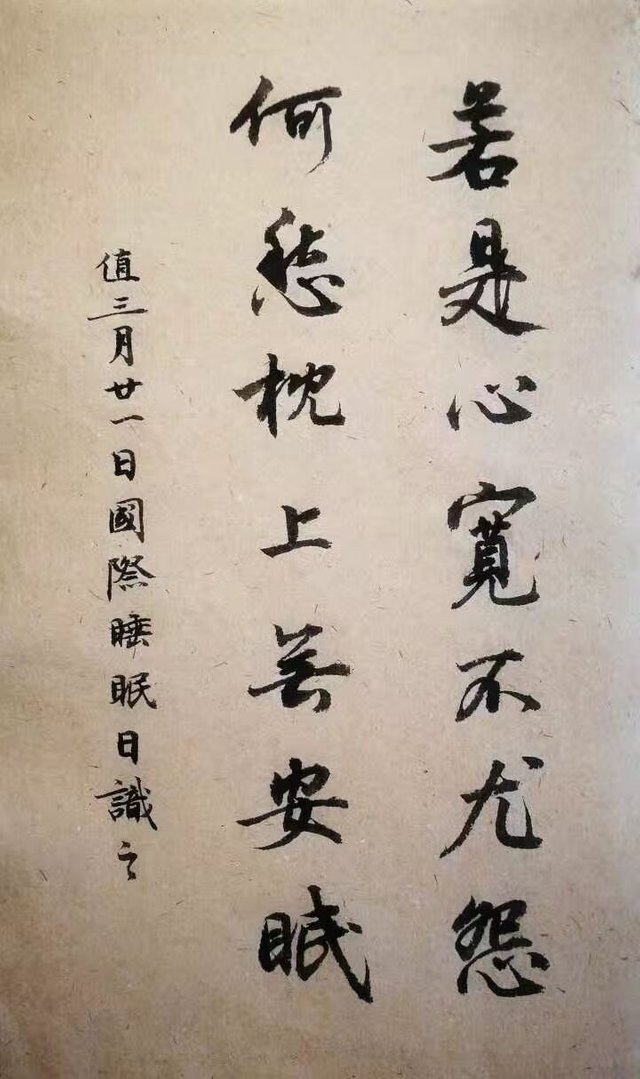 若是心寬不尤怨
何愁枕上無安眠
值三月廿一日國際睡眠日識之